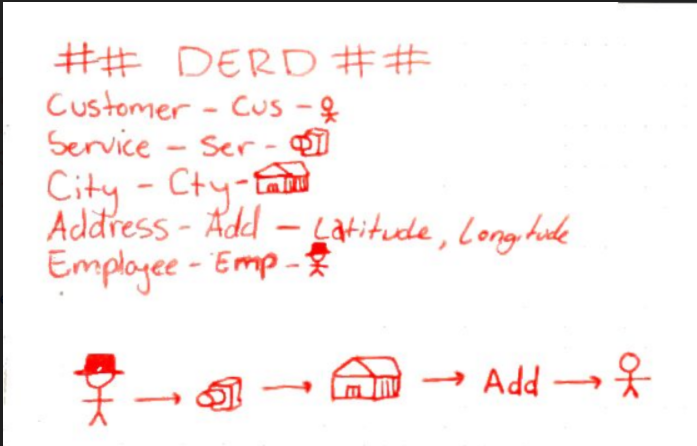 ## DERD ##
Customer - Cus -
Service - Ser -
City - Cty -
Address - Add - Latitude, Longitude
Employee - Emp -
Add